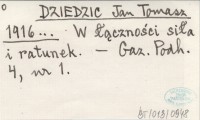 DZIEDZIC Jan Tomasz
1916... W łączności siła
i ratunek. – Gaz. Podh.
4, nr 1.
BT/013/0948